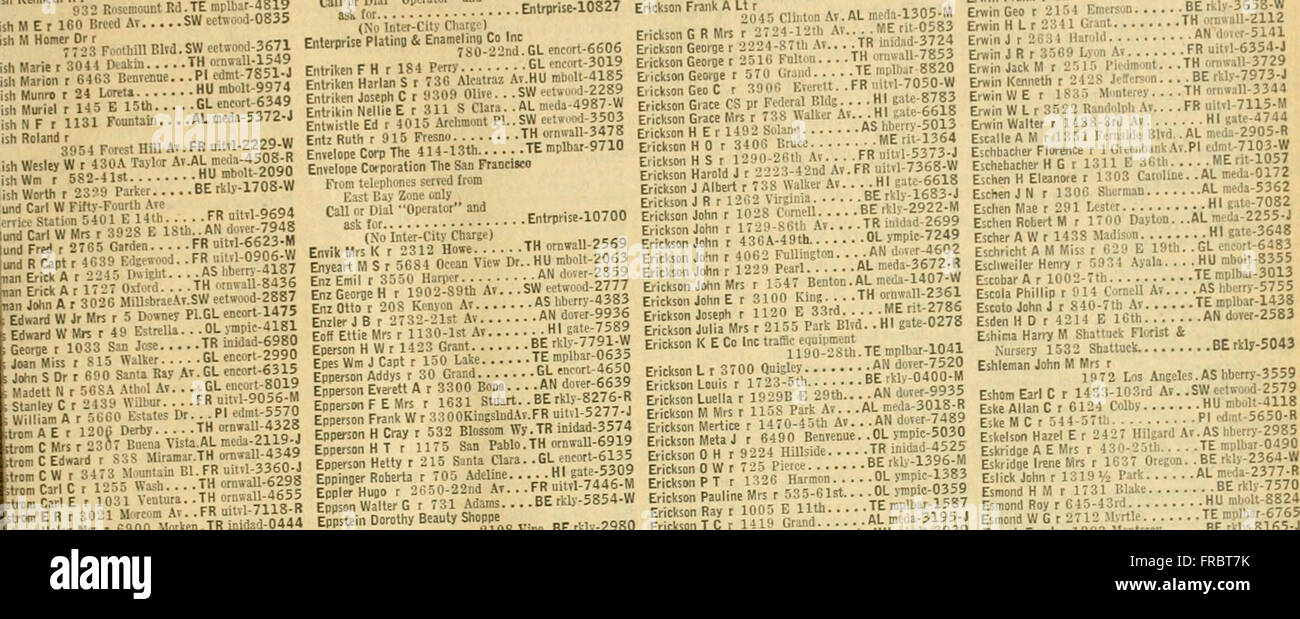 932 Rosemount Rd. TE mplbar-4819
ish M E r 160 Breed Av.....SW eetwood-0835
ish M Homer Dr r
7723 Foothill Blvd. SW eetwood-3671
ish Marie r 3044 Deakin.....TH ornwall-1549
ish Marion r 6463 Benvenue...PI edmt-7851-J
ish Munro r 24 Loreta.......HU mbolt-9974
ish Muriel r 145 E 15th.....GL encort-6349
ish N F r 1131 Fountain....AL meda-5372-J
ish Roland r
3954 Forest Hill Av. FR uitvl-2229-W
ish Wesley W r 430A Taylor Av. AL meda-4508-R
ish Wm r 582-41st..........HU mbolt-2090
ish Worth r 2329 Parker.....BE rkly-1708-W
und Carl W Fifty-Fourth Ave
ervice Station 5401 E 14th.....FR uitvl-9694
lund Carl W Mrs r 3928 E 18th...AN dover-7948
und Fred r 2765 Garden.....FR uitvl-6623-M
und R Capt r 4639 Edgewood..FR uitvl-0906-W
man Erick A r 2245 Dwight.....AS hberry-4187
man Erick A r 1727 Oxford....TH ornwall-8436
man John A r 3026 MillsbraeAv. SW eetwood-2887
s Edward W Jr Mrs r 5 Downey Pl. GL encort-1475
s Edward W Mrs r 49 Estrella...OL ympic-4181
s George r 1033 San Jose.....TR inidad-6980
s Joan Miss r 815 Walker.....GL encort-2990
s John S Dr r 690 Santa Ray Av. GL encort-6315
s Madett N r 568A Athol Av...GL encort-8019
s Stanley C r 2439 Wilbur....FR uitvl-9056-M
s William A r 5660 Estates Dr...PI edmt-5570
strom A E r 1206 Derby......TH ornwall-4328
strom C Mrs r 2307 Buena Vista. AL meda-2119-J
strom C Edward r 838 Miramar. TH ornwall-4349
strom C W r 3473 Mountain Bl. FR uitvl-3360-J
strom Carl C r 1255 Wash....TH ornwall-6298
strom Carl E r 1031 Ventura..TH ornwall-4655
strom E R r 3021 Morcom Av...FR uitvl-7118-R
6900 Morken. TR inidad-0444
Call or Dial "Operator" and
ask for.....................Entrprise-10827
(No Inter-City Charge)
Enterprise Plating & Enameling Co Inc
780-22nd. GL encort-6606
Entriken F H r 184 Perry.......GL encort-3019
Entriken Harlan S r 736 Alcatraz Av. HU mbolt-4185
Entriken Joseph C r 9309 Olive...SW eetwood-2289
Entrikin Nellie E r 311 S Clara..AL meda-4987-W
Entwistle Ed r 4015 Archmont Pl..SW eetwood-3503
Entz Ruth r 915 Fresno........TH ornwall-3478
Envelope Corp The 414-13th......TE mplbar-9710
Envelope Corporation The San Francisco
From telephones served from
East Bay Zone only
Call or Dial "Operator" and
ask for.....................Entrprise-10700
(No Inter-City Charge)
Envik Mrs K r 2312 Howe.......TH ornwall-2569
Enyeart M S r 5684 Ocean View Dr..HU mbolt-2063
Enz Emil r 3550 Harper........AN dover-2859
Enz George H r 1902-89th Av....SW eetwood-2777
Enz Otto r 208 Kenyon Av......AS hberry-4383
Enzler J B r 2732-21st Av......AN dover-9936
Eoff Ettie Mrs r 1130-1st Av.....HI gate-7589
Eperson H W r 1423 Grant......BE rkly-7791-W
Epes Wm J Capt r 150 Lake.....TE mplbar-0635
Epperson Addys r 30 Grand.....GL encort-4650
Epperson Everett A r 3300 Bona....AN dover-6639
Epperson F E Mrs r 1631 Stuart..BE rkly-8276-R
Epperson Frank W r 3300KingslndAv. FR uitvl-5277-J
Epperson H Cray r 532 Blossom Wy. TR inidad-3574
Epperson H T r 1175 San Pablo. TH ornwall-6919
Epperson Hetty r 215 Santa Clara..GL encort-6135
Eppinger Roberta r 705 Adeline......HI gate-5309
Eppler Hugo r 2650-22nd Av....FR uitvl-7446-M
Eppson Walter G r 731 Adams...BE rkly-5854-W
Eppstein Dorothy Beauty Shoppe
2108 Vine. BE rkly-2980
Erickson Frank A Lt r
2045 Clinton Av. AL meda-1305-M
Erickson G R Mrs r 2724-12th Av....ME rit-0583
Erickson George r 2224-87th Av....TR inidad-3724
Erickson George r 2516 Fulton....TH ornwall-7853
Erickson George r 570 Grand.....TE mplbar-8820
Erickson Geo C r 3906 Everett..FR uitvl-7050-W
Erickson Grace CS pr Federal Bldg....HI gate-8783
Erickson Grace Mrs r 738 Walker Av...HI gate-6618
Erickson H E r 1492 Solano......AS hberry-5013
Erickson H O r 3406 Bruce........ME rit-1364
Erickson H S r 1290-26th Av....FR uitvl-5373-J
Erickson Harold J r 2223-42nd Av. FR uitvl-7368-W
Erickson J Albert r 738 Walker Av....HI gate-6618
Erickson J R r 1262 Virginia.....BE rkly-1683-J
Erickson John r 1028 Cornell....BE rkly-2922-M
Erickson John r 1729-86th Av...TR inidad-2699
Erickson John r 436A-49th......OL ympic-7249
Erickson John r 4062 Fullington....AN dover-4602
Erickson John r 1229 Pearl.....AL meda-3672-R
Erickson John Mrs r 1547 Benton. AL meda-1407-W
Erickson John E r 3100 King....TH ornwall-2361
Erickson Joseph r 1120 E 33rd......ME rit-2786
Erickson Julia Mrs r 2155 Park Blvd..HI gate-0278
Erickson K E Co Inc traffic equipment
1190-28th. TE mplbar-1041
Erickson L r 3700 Quigley......AN dover-7520
Erickson Louis r 1723-5th......BE rkly-0400-M
Erickson Luella r 1929B E 29th...AN dover-9935
Erickson M Mrs r 1158 Park Av...AL meda-3018-R
Erickson Mertice r 1470-45th Av...AN dover-7489
Erickson Meta J r 6490 Benvenue..OL ympic-5030
Erickson O H r 9224 Hillside.....TR inidad-4525
Erickson O W r 725 Pierce......BE rkly-1396-M
Erickson P T r 1326 Harmon....OL ympic-1383
Erickson Pauline Mrs r 535-61st....OL ympic-0359
Erickson Ray r 1005 E 11th.....TE mplbar-1587
Erickson T C r 1419 Grand.....AL meda-3195-J
Erwin Geo r 2154 Emerson......BE rkly-3658-W
Erwin H L r 2341 Grant.......TH ornwall-2112
Erwin J r 2634 Harold.........AN dover-5141
Erwin J R r 3569 Lyon Av.....FR uitvl-6354-J
Erwin Jack M r 2515 Piedmont...TH ornwall-3729
Erwin Kenneth r 2428 Jefferson....BE rkly-7973-J
Erwin W E r 1835 Monterey....TH ornwall-3344
Erwin W L r 3522 Randolph Av...FR uitvl-7115-M
Erwin Walter r 1438-3rd Av.......HI gate-4744
Escalle A M r 1351 Fernside Blvd. AL meda-2905-R
Eschbacher Florence r 1 Greenbank Av. PI edmt-7103-W
Eschebacher H G r 1311 E 36th......ME rit-1057
Eschen H Eleanore r 1303 Caroline..AL meda-0172
Eschen J N r 1306 Sherman......AL meda-5362
Eschen Mae r 291 Lester.........HI gate-7082
Eschen Robert M r 1700 Dayton...AL meda-2255-J
Escher A W r 1438 Madison.......HI gate-3648
Eschricht A M Miss r 629 E 19th..GL encort-6483
Eschweiler Henry r 5934 Ayala....HU mbolt-8355
Escobar A r 1002-7th..........TE mplbar-3013
Escola Phillip r 914 Cornell Av...AS hberry-5755
Escoto John J r 840-7th Av.....TE mplbar-1438
Esden H D r 4214 E 16th.......AN dover-2583
Eshima Harry M Shattuck Florist &
Nursery 1532 Shattuck........BE rkly-5043
Eshleman John M Mrs r
1972 Los Angeles. AS hberry-3559
Eshom Earl C r 1453-103rd Av..SW eetwood-2579
Eske Allan C r 6124 Colby......HU mbolt-4118
Eske M C r 544-57th.........PI edmt-5650-R
Eskelson Hazel E r 2427 Hilgard Av. AS hberry-2985
Eskridge A E Mrs r 430-25th.....TE mplbar-0490
Eskridge Irene Mrs r 1637 Oregon..BE rkly-2364-W
Eslick John r 1319½ Park.....AL meda-2377-R
Esmond H M r 1731 Blake......BE rkly-7570
Esmond Roy r 645-43rd........HU mbolt-8824
Esmond W G r 2712 Myrtle.....TE mplbar-6765
alamy stock photo
FRBT7K
www.alamy.com